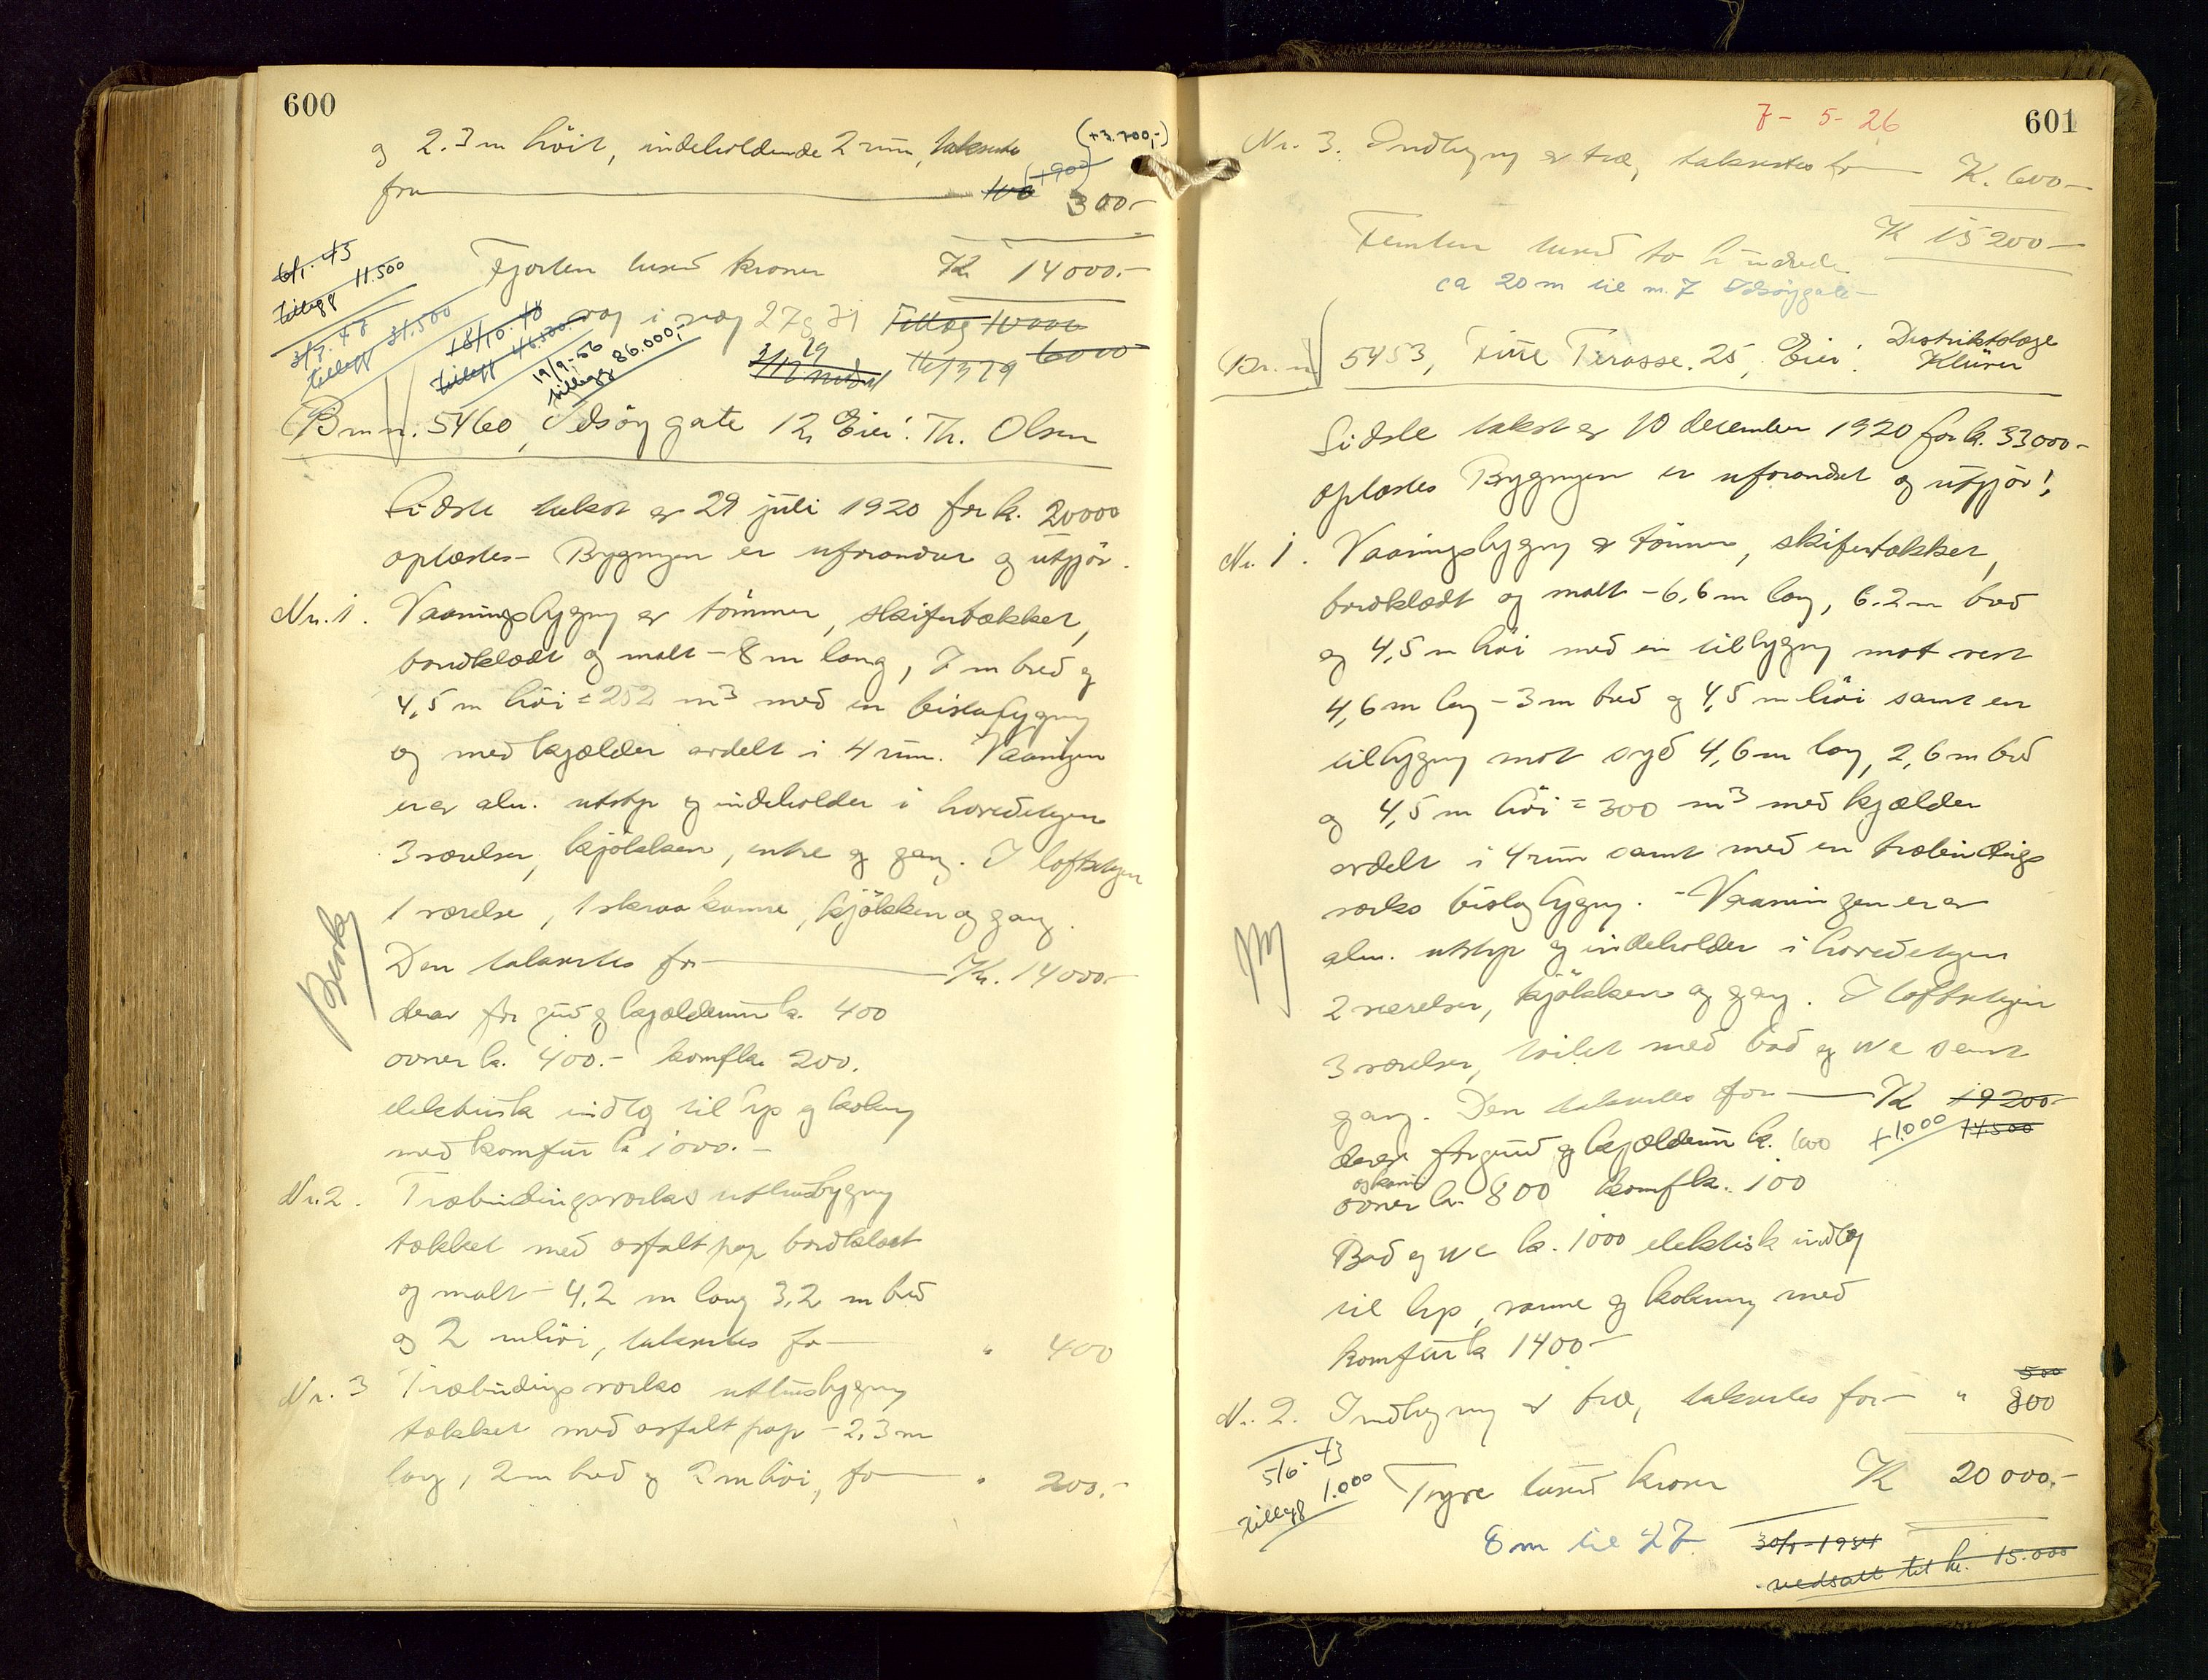 600
og 2.3 m höit, indeholdende 2 rum, taksertes
(+3.700,-)
(+900)
for 100 300-
6/1. 43
tillegg 11.500
Fjorten tusend kroner K 14000.-
3/7. 48
tillegg 31.500
18/10. 48
tillegg 46.500.
19/9-56
tillegg 86.000,-
væg i væg 27 og 31
Tillæg 10000
6000
Br.nr. 5460, Idsöygate 12, Eier: Th. Olsen
Sidste takst er 29 juli 1920 for k. 20000
oplæstes - Bygningen er uforandret og utgjör.
Nr. 1. Vaaningsbygning av tömmer, skifertækket,
bordklædt og malt - 8 m lang, 7 m bred og
4,5 m höi = 252 m3 med en bislagbygning
og med kjælder avdelt i 4 rum. Vaaningen
er av alm. utstyr og indeholder i hovedetagen
3 værelser, kjökken, entre og gang. I loftsetagen
1 værelse, 1 skraakammer, kjökken og gang.
Den taksertes for Kr. 14000-
derav for grund og kjældermur k. 400
ovner k. 400.- komf k. 200.
elektrisk indlæg til lys og kokning
med komfur k 1000.-
Nr. 2. Træbindingsverks uthusbygning
tækket med asfaltpap bordklædt
og malt - 4,2 m lang 3,2 m bred
og 2 m höi, taksertes for " 400
Nr. 3 Træbindingsverks uthusbygning
tækket med asfaltpap - 2,3 m
lang, 2 m bred og 2 m höi, for " 200.-
7 - 5 - 26
601
Nr. 3. Indhegning av træ, taksertes for K. 600-
K 15200-
Femten tusend to hundrede
ca 20 m til nr. 7 Idsöygate
Br. nr 5453, Terasse. 25, Eier: Distriktslæge
Klüver
Sidste takst er 10 december 1920 for k. 33000-
oplæstes Bygningen er uforandret og utgjör:
Nr. 1. Vaaningsbygning av tömmer, skifertækket,
bordklædt og malt - 6,6 m lang, 6.2 m bred
og 4,5 m höi med en tilbygning mot vest
4,6 m lang - 3 m bred og 4,5 m höi samt en
tilbygning mot syd 4,6 m lang, 2,6 m bred
og 4,5 m höi = 300 m3 med kjælder
avdelt i 4 rum samt med en træbindings
verks bislagbygning. - Vaaningen er av
alm. utstyr og indeholder i hovedetagen
2 værelser, kjökken og gang. I loftsetagen
3 værelser, toilet med bad og wc samt
gang. Den taksertes for K 19200-
derav for grund og kjældermur k. 600 +1.000 14500
og kamin
ovner k. 800 komf k. 100
Bad og wc k. 1000 elektrisk indlæg
til lys, varme og kokning med
komfur k 1400-
500
Nr. 2. Indhegning av træ, taksertes for - " 800
5/6-43
tillegg 1.000
Tyve tusend kroner K 20000.-
8 m til 27
30/1-1934
nedsatt til kr. 15.000